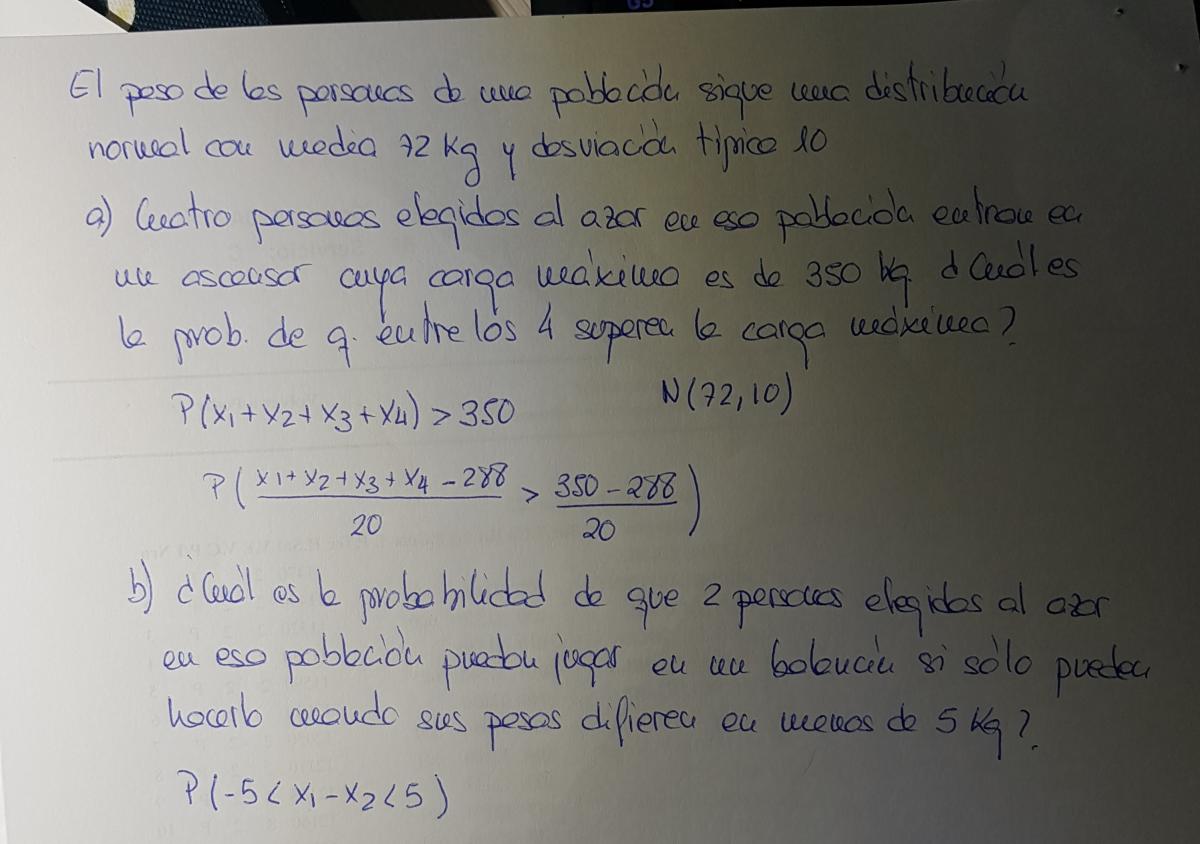 El peso de las personas de una población sigue una distribución
normal con media 72 kg y desviación típica 10
a) Cuatro personas elegidas al azar en esa población entran en
un ascensor cuya carga máxima es de 350 kg ¿Cuál es
la prob. de q. entre los 4 superen la carga máxima?
P(x1+x2+x3+x4) > 350 N(72,10)
P( (x1+x2+x3+x4 - 288)/20 > (350-288)/20 )
b) ¿Cuál es la probabilidad de que 2 personas elegidas al azar
en esa población puedan jugar en un balancín si sólo pueden
hacerlo cuando sus pesos difieren en menos de 5 kg?
P(-5 < x1-x2 < 5)